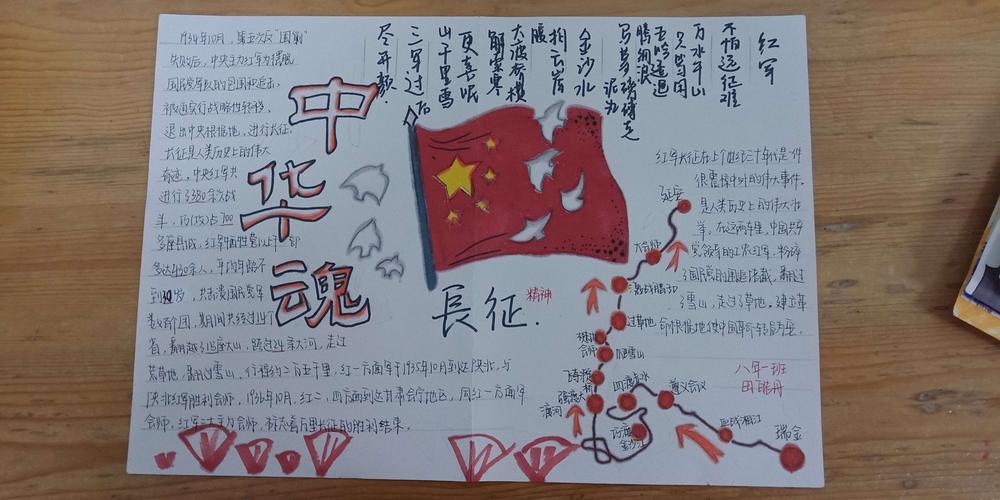 1934年10月，第五次反"围剿"
失败后，中央主力红军为摆脱
国民党军队的包围和追击，
被迫实行战略性转移，
退出中央根据地，进行长征。
长征是人类历史上的伟大
奇迹，中央红军共
进行了380余次战
斗，攻占700
多座县城，红军牺牲营以上干部
多达430余人，平均年龄不
到30岁，共击溃国民党军
数百个团，期间共经过14个
省，翻越了18座大山，跨过24条大河，走过
荒草地，翻过雪山，行程约二万五千里，红一方面军于1935年10月到达陕北，与
陕北红军胜利会师。1936年10月，红二、四方面到达甘肃会宁地区，同红一方面军
会师。红军三大主力会师，标志着万里长征的胜利结束。
中
华
魂
红军
不怕远征难
万水千山
只等闲
五岭逶迤
腾细浪
乌蒙磅礴走
泥丸
金沙水
拍云崖
暖
大渡桥横
铁索寒
更喜岷
山千里雪
三军过后
尽开颜
長征.
精神
红军长征在上个世纪三十年代是一件
很震惊中外的伟大事件。
是人类历史上的伟大壮
举，在这两年里，中国共产
党领导的工农红军，粉碎
了国民党的围追堵截，翻过
了雪山，走过了草地。建立革
命根据地使中国革命转危为安。
延安
大会师
激战腊子口
过草地
会师
爬雪山
飞夺泸定
桥
强渡大
渡河
四渡赤水
巧渡
金沙江
遵义会议
血战湘江
瑞金
八年一班